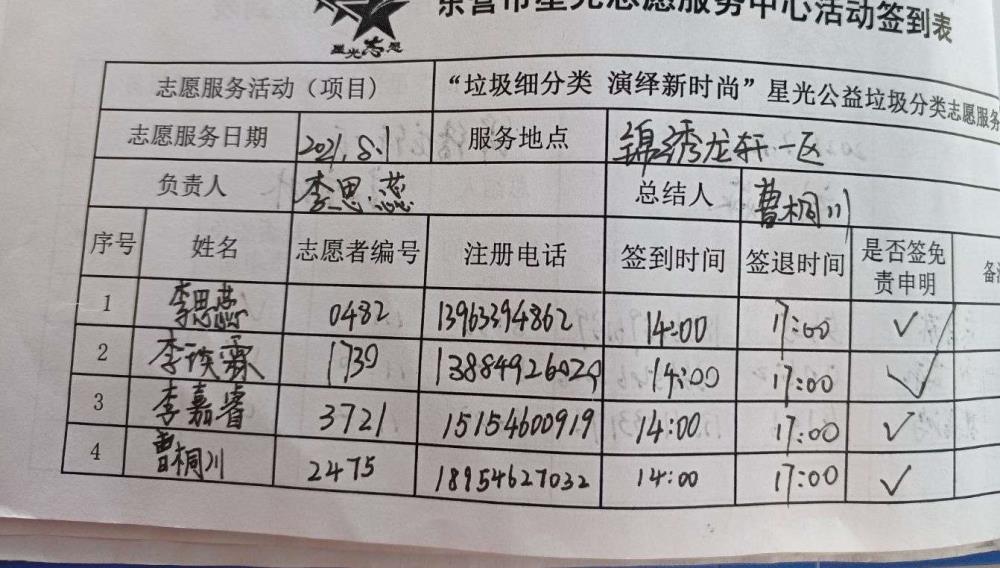 东营市星光志愿服务中心活动签到表
星光志愿
志愿服务活动（项目） “垃圾细分类 演绎新时尚”星光公益垃圾分类志愿服务
志愿服务日期 2021.8.1 服务地点 锦绣龙轩一区
负责人 李思蕊 总结人 曹桐川
序号 姓名 志愿者编号 注册电话 签到时间 签退时间 是否签免责申明 备
1 李思蕊 0482 13963394862 14:00 17:00 ✓
2 李 霖 1730 13884926029 14:00 17:00 ✓
3 李嘉睿 3721 15154600919 14:00 17:00 ✓
4 曹桐川 2475 18954627032 14:00 17:00 ✓